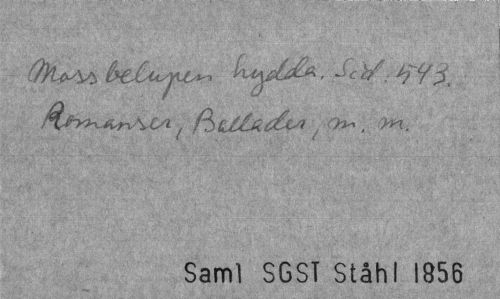 Mossbelupen hydda. Sid. 543.
Romanser, Ballader, m. m.
Saml SGST Ståhl 1856